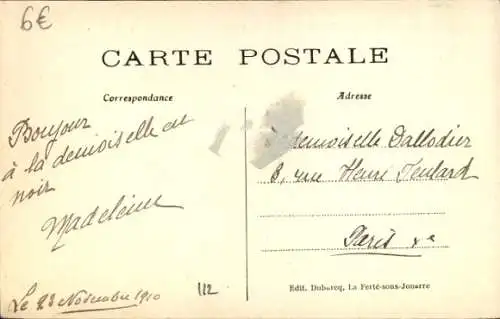 6€
CARTE POSTALE
Correspondance
Adresse
Bonjour
à la demoiselle en
noir
Madeleine
Le 23 Novembre 1910
112
demoiselle Dallodier
8, rue Henri Feulard
Paris xe
Edit. Dubarcq, La Ferté-sous-Jouarre